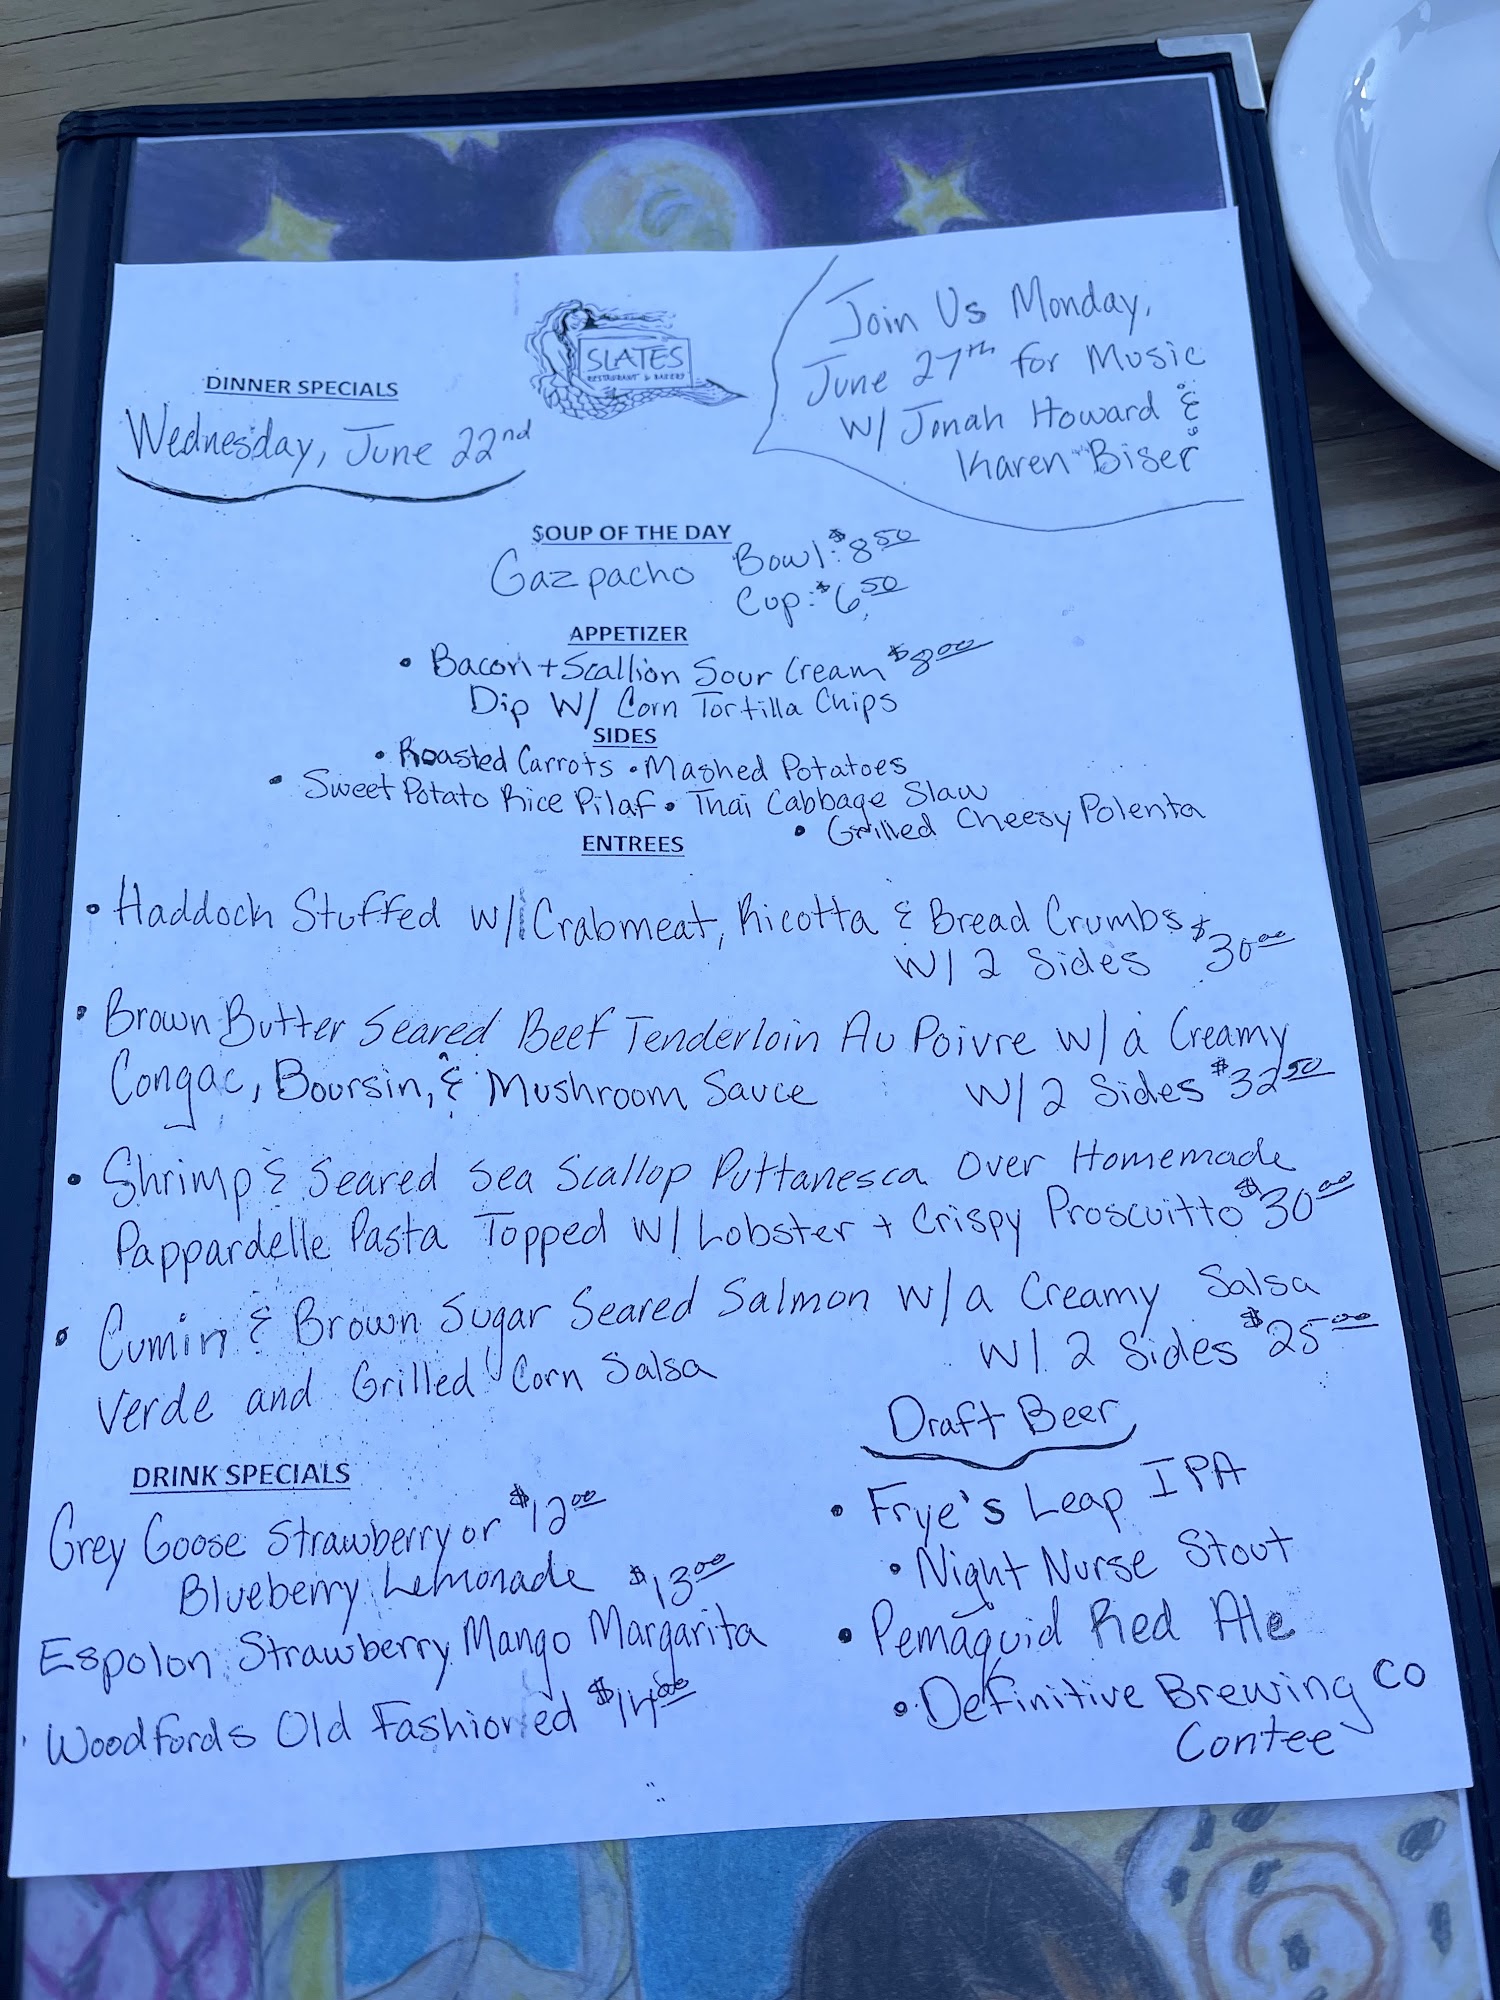 SLATES
RESTAURANT & BAKERY
Join Us Monday,
June 27th for Music
W/ Jonah Howard &
Karen Biser
DINNER SPECIALS
Wednesday, June 22nd
SOUP OF THE DAY
Gazpacho Bowl: $8.50
Cup: $6.50
APPETIZER
• Bacon + Scallion Sour Cream $8.00
Dip W/ Corn Tortilla Chips
SIDES
• Roasted Carrots • Mashed Potatoes
• Sweet Potato Rice Pilaf • Thai Cabbage Slaw
• Grilled Cheesy Polenta
ENTREES
• Haddock Stuffed W/ Crabmeat, Ricotta & Bread Crumbs
W/ 2 Sides $30.00
• Brown Butter Seared Beef Tenderloin Au Poivre W/ a Creamy
Congac, Boursin, & Mushroom Sauce W/ 2 Sides $32.50
• Shrimp & Seared Sea Scallop Puttanesca Over Homemade
Pappardelle Pasta Topped W/ Lobster + Crispy Proscuitto $30.00
• Cumin & Brown Sugar Seared Salmon W/ a Creamy Salsa
Verde and Grilled Corn Salsa W/ 2 Sides $25.00
DRINK SPECIALS
Grey Goose Strawberry or $12.00
Blueberry Lemonade $13.00
Espolon Strawberry Mango Margarita
Woodfords Old Fashioned $14.00
Draft Beer
• Frye's Leap IPA
• Night Nurse Stout
• Pemaquid Red Ale
• Definitive Brewing CO
Contee